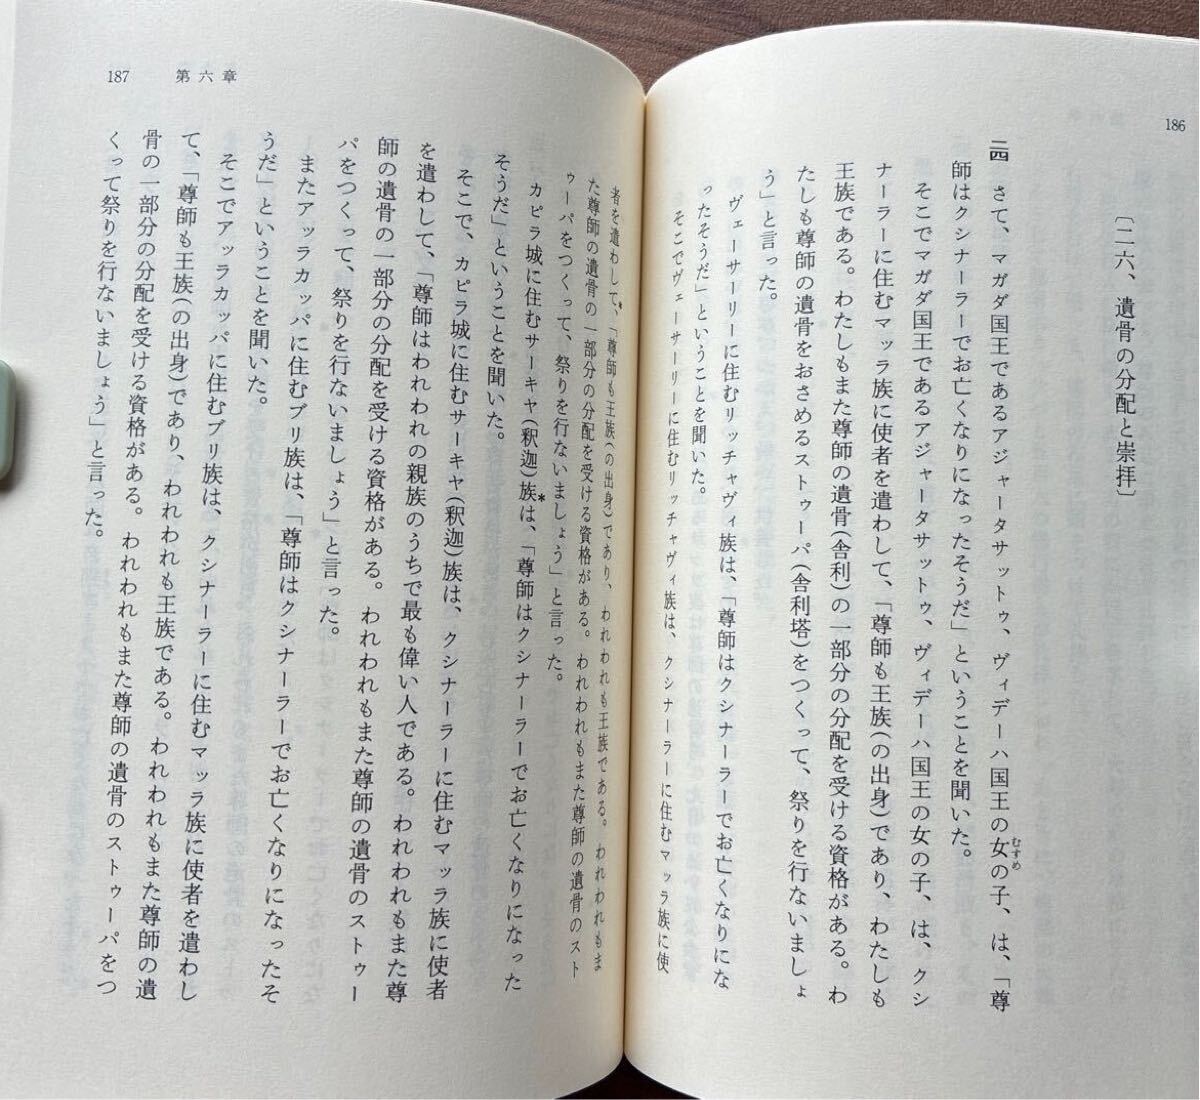 186
〔二六、遺骨の分配と崇拝〕
二四 さて、マガダ国王であるアジャータサットゥ、ヴィデーハ国王の女の子、は、「尊
むすめ
師はクシナーラーでお亡くなりになったそうだ」ということを聞いた。
そこでマガダ国王であるアジャータサットゥ、ヴィデーハ国王の女の子、は、クシ
ナーラーに住むマッラ族に使者を遣わして、「尊師も王族(の出身)であり、わたしも
王族である。わたしもまた尊師の遺骨(舎利)の一部分の分配を受ける資格がある。わ
たしも尊師の遺骨をおさめるストゥーパ(舎利塔)をつくって、祭りを行ないましょ
う」と言った。
ヴェーサーリーに住むリッチャヴィ族は、「尊師はクシナーラーでお亡くなりにな
ったそうだ」ということを聞いた。
そこでヴェーサーリーに住むリッチャヴィ族は、クシナーラーに住むマッラ族に使
187 第六章
者を遣わして、「尊師も王族(の出身)であり、われわれも王族である。われわれもま
た尊師の遺骨の一部分の分配を受ける資格がある。われわれもまた尊師の遺骨のスト
ゥーパをつくって、祭りを行ないましょう」と言った。
カピラ城に住むサーキヤ(釈迦)族*は、「尊師はクシナーラーでお亡くなりになった
そうだ」ということを聞いた。
そこで、カピラ城に住むサーキヤ(釈迦)族は、クシナーラーに住むマッラ族に使者
を遣わして、「尊師はわれわれの親族のうちで最も偉い人である。われわれもまた尊
師の遺骨の一部分の分配を受ける資格がある。われわれもまた尊師の遺骨のストゥー
パをつくって、祭りを行ないましょう」と言った。
またアッラカッパに住むブリ族は、「尊師はクシナーラーでお亡くなりになったそ
うだ」ということを聞いた。
そこでアッラカッパに住むブリ族は、クシナーラーに住むマッラ族に使者を遣わし
て、「尊師も王族(の出身)であり、われわれも王族である。われわれもまた尊師の遺
骨の一部分の分配を受ける資格がある。われわれもまた尊師の遺骨のストゥーパをつ
くって祭りを行ないましょう」と言った。